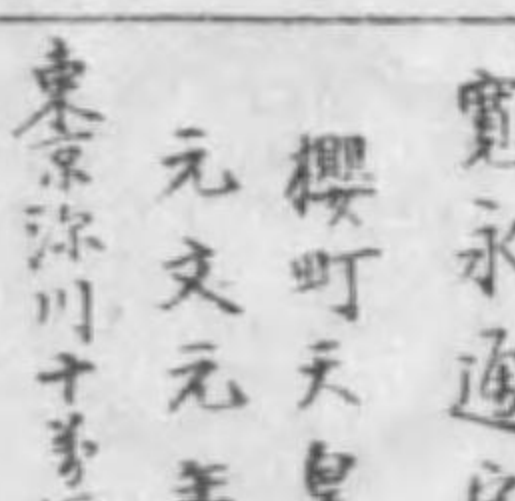 寛永通
櫻町天皇
元文元年
東京深川十萬